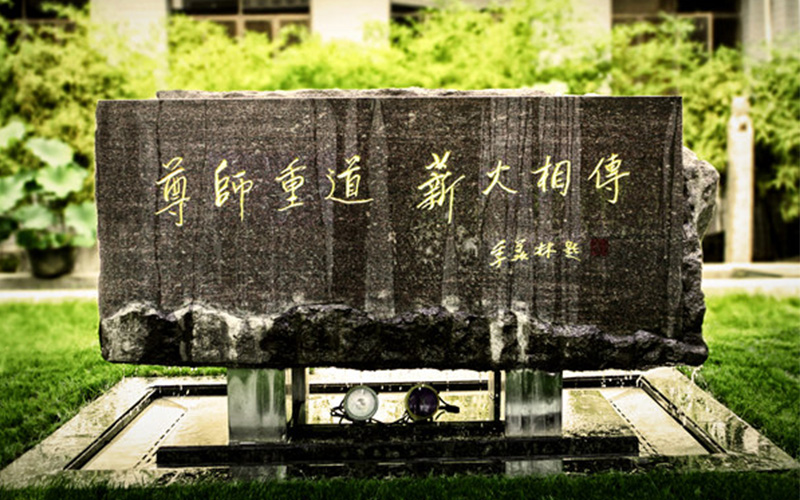 尊師重道 薪火相傳
季羡林题